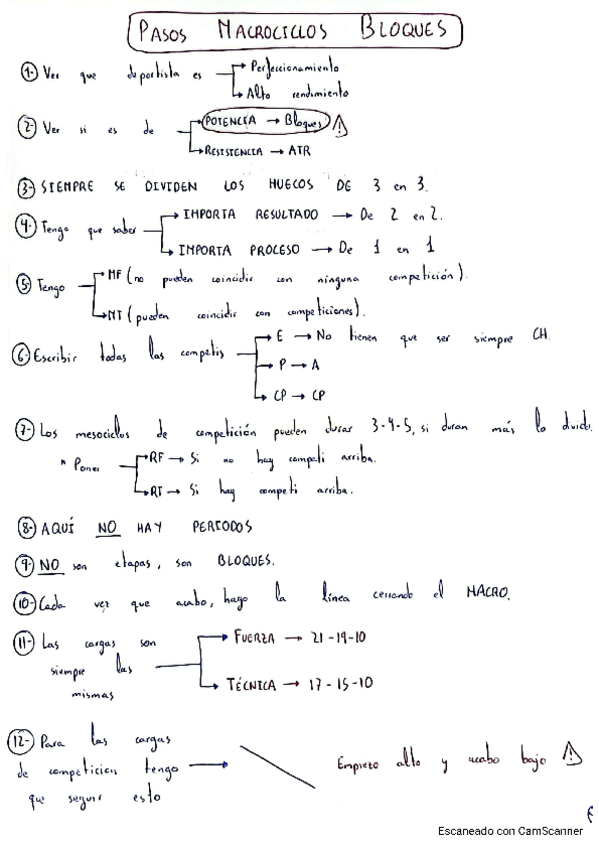 PASOS MACROCICLOS BLOQUES
1- Ver que deportista es → Perfeccionamiento
→ Alto rendimiento
2- Ver si es de → POTENCIA → Bloques ⚠
→ RESISTENCIA → ATR
3- SIEMPRE SE DIVIDEN LOS HUECOS DE 3 en 3.
4- Tengo que saber → IMPORTA RESULTADO → De 2 en 2.
→ IMPORTA PROCESO → De 1 en 1
5- Tengo → MF (no pueden coincidir con ninguna competición).
→ MT (pueden coincidir con competiciones).
6- Escribir todas las competis → E → No tienen que ser siempre CH.
→ P → A
→ CP → CP
7- Los mesociclos de competición pueden durar 3-4-5, si duran más lo divido.
* Poner → RF → Si no hay competi arriba.
→ RT → Si hay competi arriba.
8- AQUÍ NO HAY PERIODOS
9- NO son etapas, son BLOQUES.
10- Cada vez que acabo, hago la línea cerrando el MACRO.
11- Las cargas son siempre las mismas → FUERZA → 21-19-10
→ TÉCNICA → 17-15-10
12- Para las cargas
de competicion tengo → Empiezo alto y acabo bajo ⚠
que seguir esto
Escaneado con CamScanner